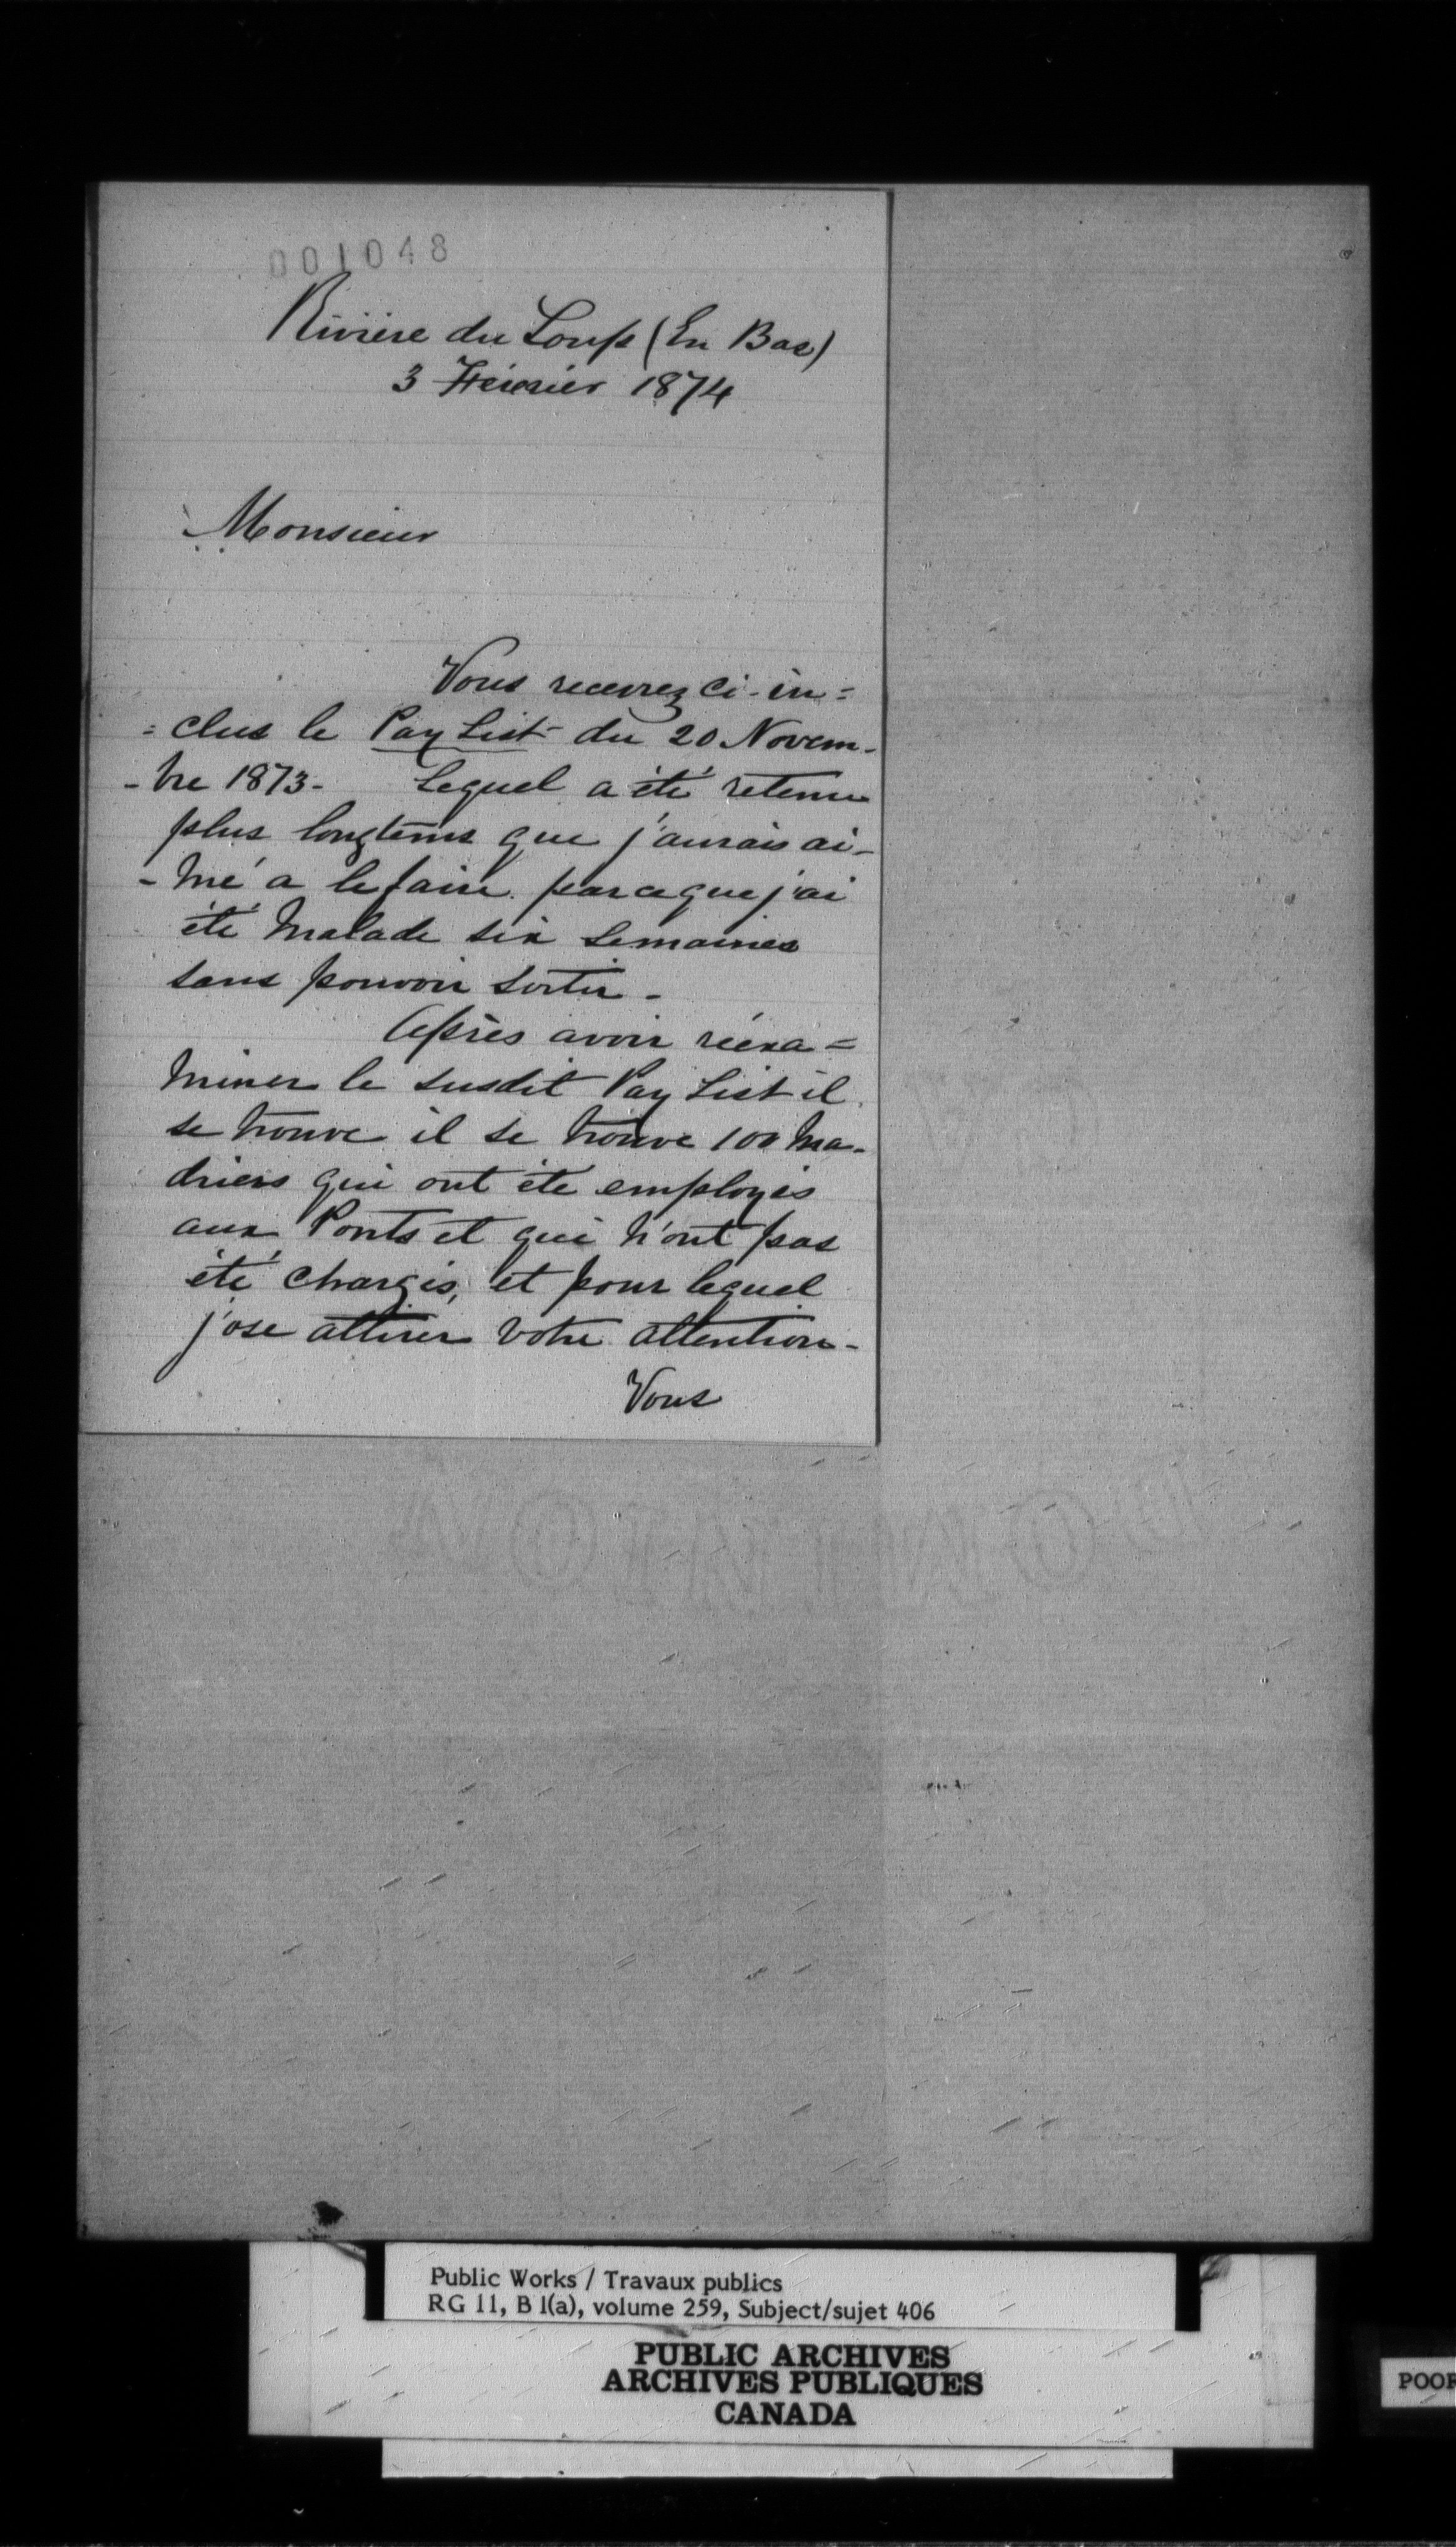 001048
Rivière du Loup (En Bas)
3 Février 1874
Monsieur
Vous recevrez ci-in=
=clus le Pay List du 20 Novem-
-bre 1873- Lequel a été retenu
plus longtems que j'aurais ai-
-mé a le faire parceque j'ai
été malade six semaines
sans pouvoir sortir -
Après avoir réexa=
miner le susdit Pay List il
se trouve il se trouve 100 ma-
driers qui ont été employés
aux Ponts et qui n'ont pas
été chargés, et pour lequel
j'ose attirer votre attention -
Vous
Public Works / Travaux publics
RG 11, B 1(a), volume 259, Subject/sujet 406
PUBLIC ARCHIVES
ARCHIVES PUBLIQUES
CANADA